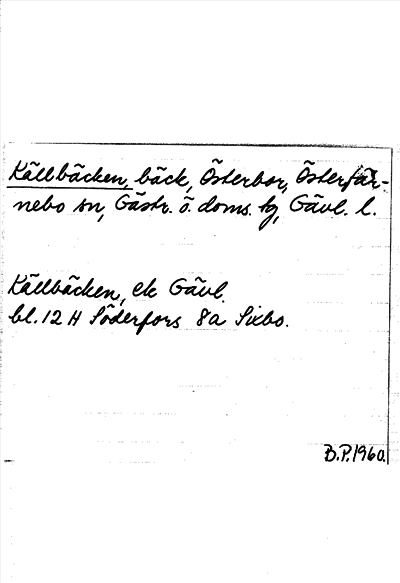 Källbäcken, bäck, Österbor, Österfär-
nebo sn, Gästr. ö. doms. tg, Gävl. l.
Källbäcken, ek Gävl.
bl. 12 H Söderfors 8a Sixbo.
B.P. 1960.